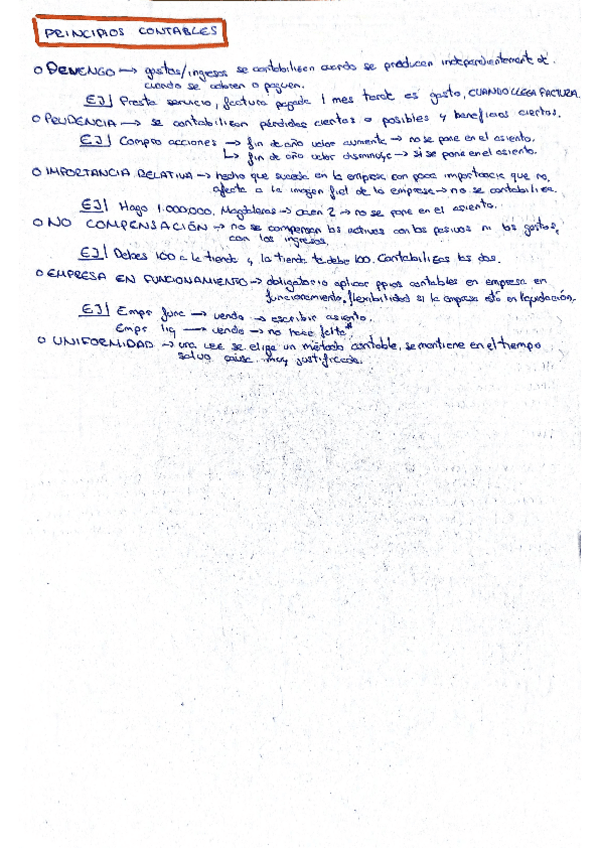 PRINCIPIOS CONTABLES
O DEVENGO → gastos/ingresos se contabilizan cuando se producen independientemente de
cuando se cobren o paguen.
EJ| Presto servicio, factura pagada 1 mes tarde es gasto, CUANDO LLEGA FACTURA.
O PRUDENCIA → se contabilizan pérdidas ciertas o posibles y beneficios ciertos.
EJ| Compro acciones → fin de año valor aumenta → no se pone en el asiento.
↳ fin de año valor disminuye → si se pone en el asiento.
O IMPORTANCIA RELATIVA → hecho que suceda en la empresa con poca importancia que no
afecte a la imagen fiel de la empresa → no se contabiliza.
EJ| Hago 1.000.000. Magdalenas → caen 2 → no se pone en el asiento.
O NO COMPENSACIÓN → no se compensan los activos con los pasivos ni los gastos,
con los ingresos.
EJ| Debes 100 a la tienda y la tienda te debe 100. Contabilizas los dos.
O EMPRESA EN FUNCIONAMIENTO → obligatorio aplicar ppios contables en empresa en
funcionamiento, flexibilidad si la empresa está en liquidación.
EJ| Empr func → vendo → escribir asiento.
Empr liq → vendo → no hace falta
O UNIFORMIDAD → una vez se elige un método contable, se mantiene en el tiempo
salvo causa muy justificada.